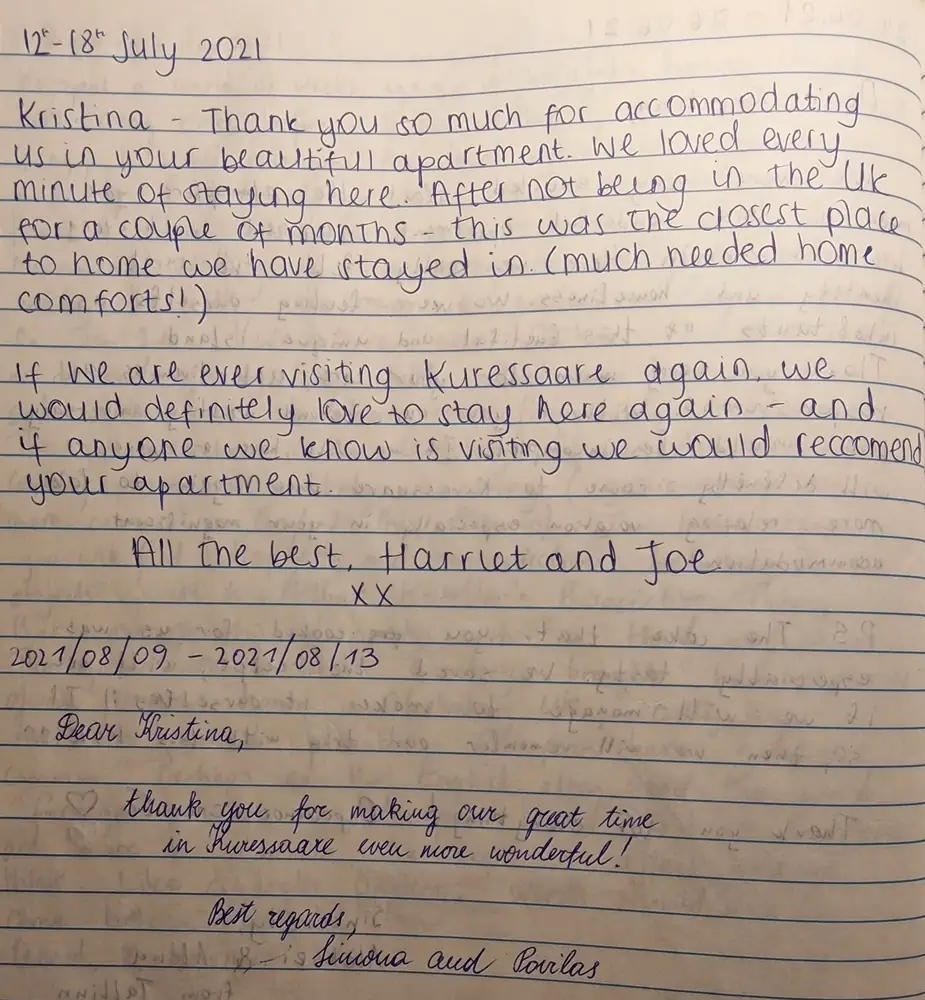 12th-18th July 2021
Kristina - Thank you so much for accommodating
us in your beautiful apartment. We loved every
minute of staying here. After not being in the UK
for a couple of months - this was the closest place
to home we have stayed in. (much needed home
comforts!)
If we are ever visiting Kuressaare again, we
would definitely love to stay here again - and
if anyone we know is visiting we would reccomend
your apartment.
All the best, Harriet and Joe
xx
2021/08/09 - 2021/08/13
Dear Kristina,
♡ thank you for making our great time
in Kuressaare even more wonderful!
Best regards,
Simona and Povilas